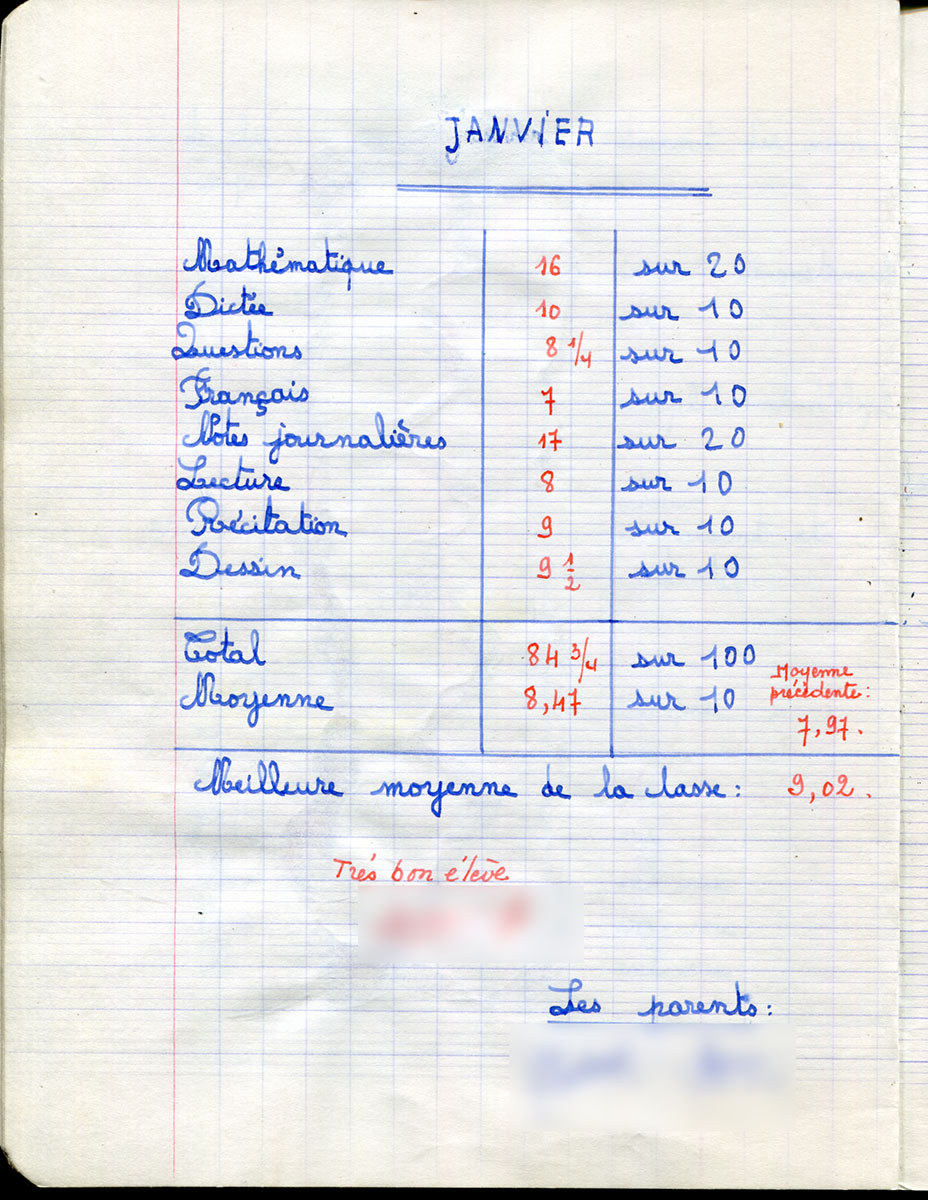 JANVIER
Mathématique 16 sur 20
Dictée 10 sur 10
Questions 8 1/4 sur 10
Français 7 sur 10
Notes journalières 17 sur 20
Lecture 8 sur 10
Récitation 9 sur 10
Dessin 9 1/2 sur 10
Total 84 3/4 sur 100
Moyenne 8,47 sur 10
Moyenne
précédente:
7,97.
Meilleure moyenne de la lasse: 9,02.
Trés bon élève
Les parents: